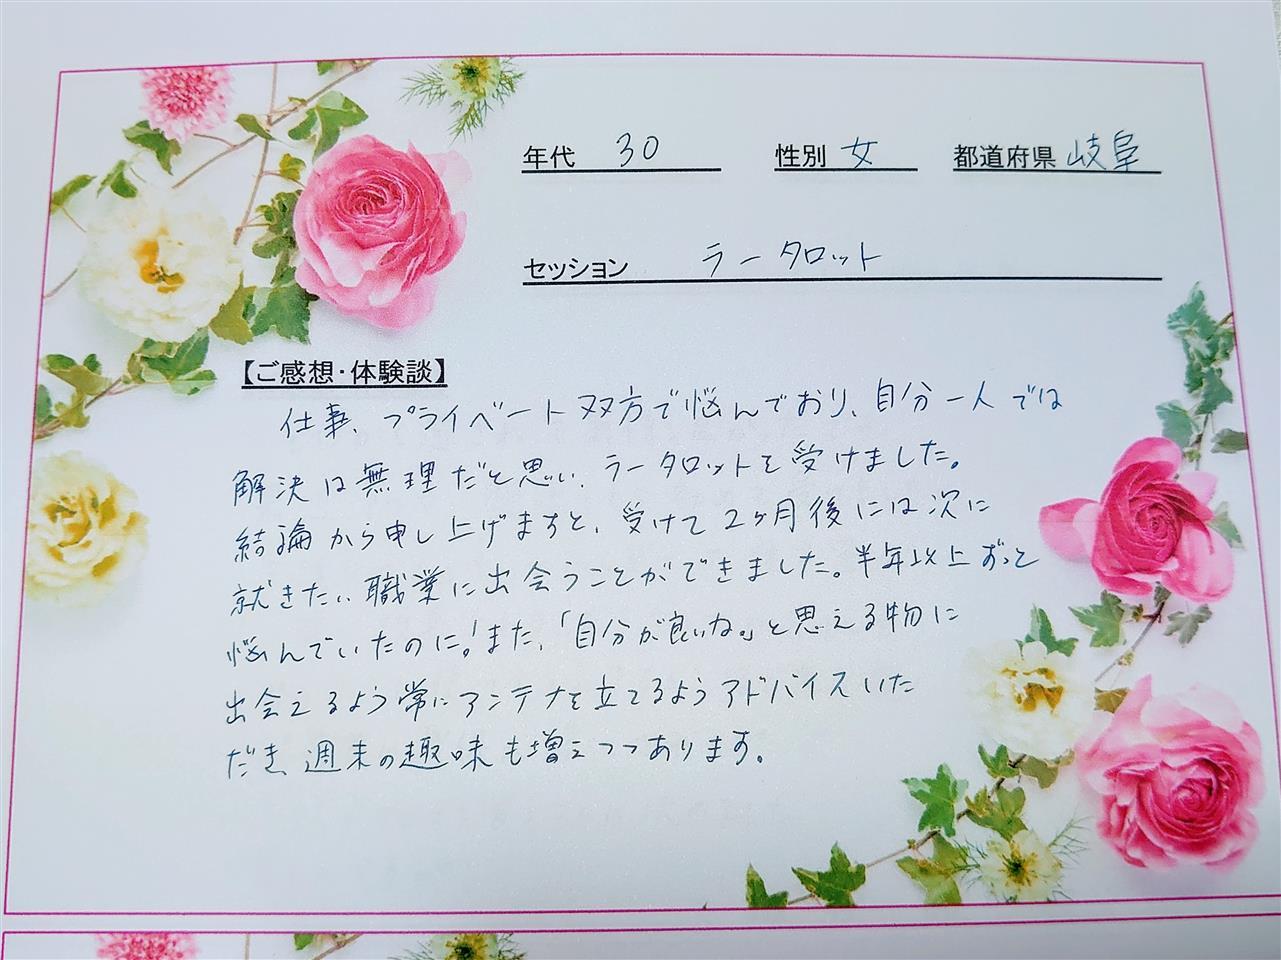 年代 30 性別 女 都道府県 岐阜
セッション ラータロット
【ご感想・体験談】
仕事、プライベート双方で悩んでおり、自分一人では
解決は無理だと思い、ラータロットを受けました。
結論から申し上げますと、受けて2ヶ月後には次に
就きたい職業に出会うことができました。半年以上ずっと
悩んでいたのに!また、「自分が良いな。」と思える物に
出会えるよう常にアンテナを立てるようアドバイスいた
だき、週末の趣味も増えつつあります。